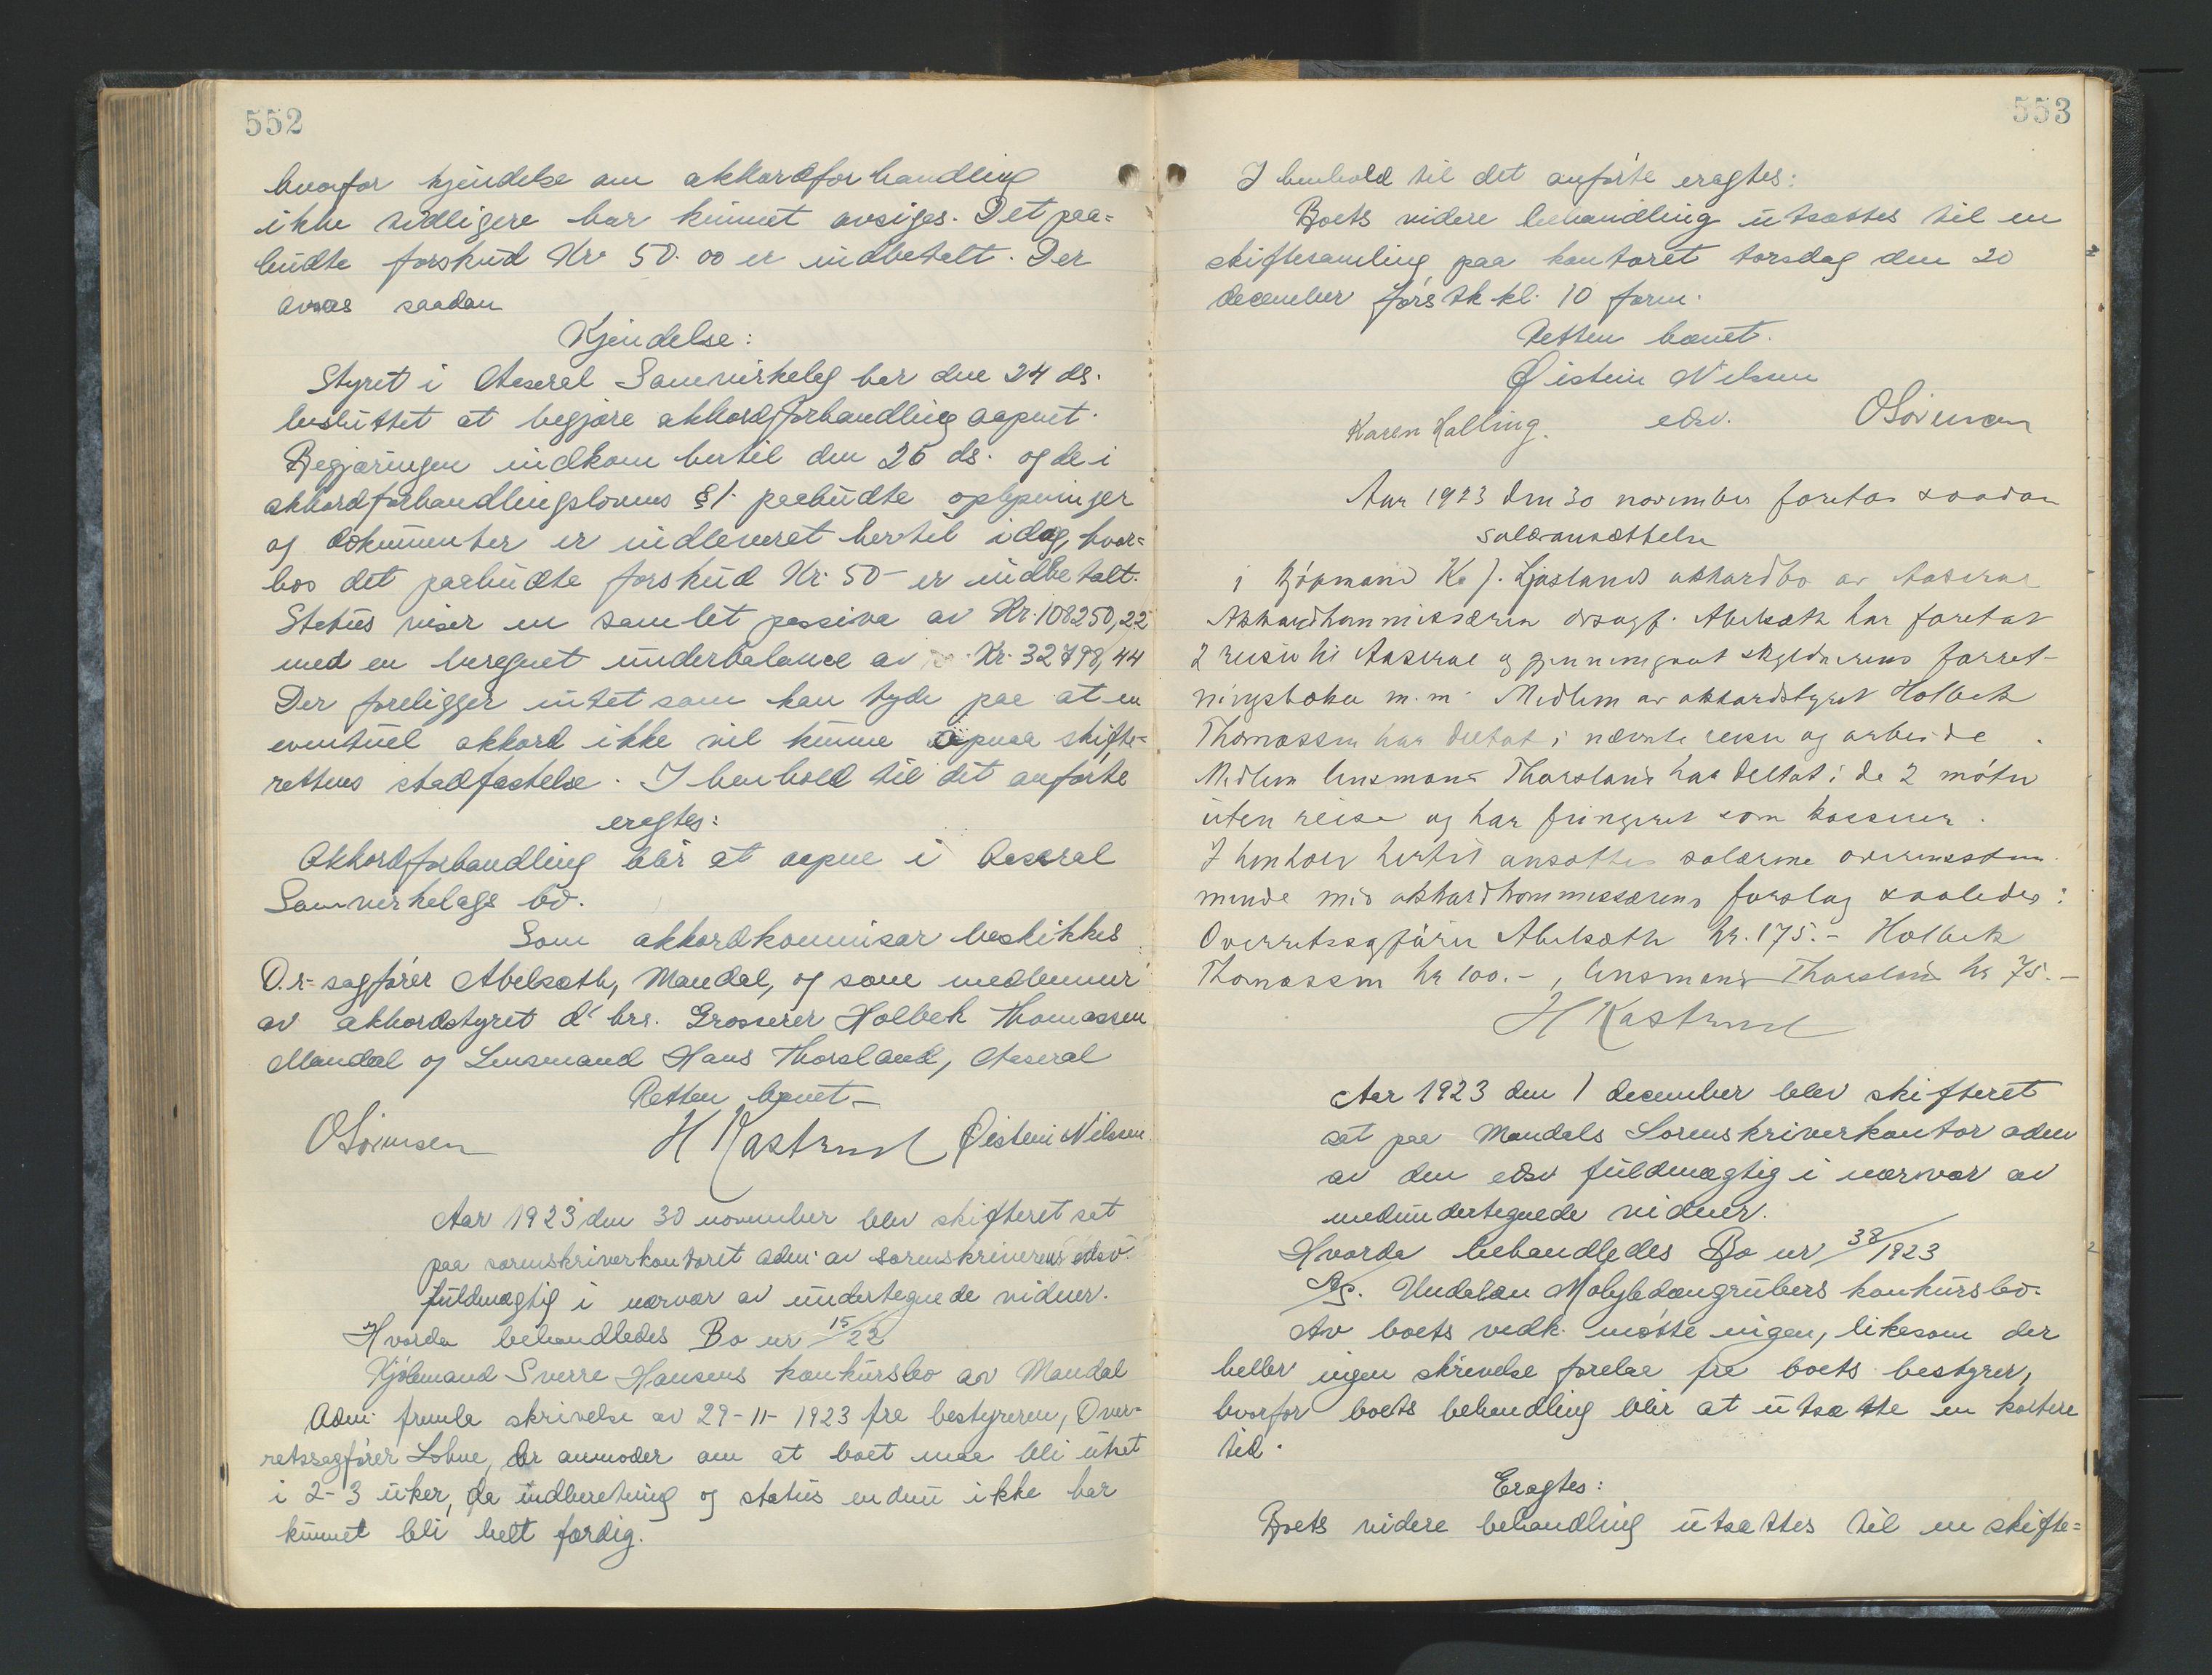 552
hvorfor kjendelse om akkordforhandling
ikke tidligere har kunnet avsiges. Det paa-
budte forskud Kr 50.00 er indbetalt. Der
avsaes saadan
Kjendelse:
Styret i Aaseral Samvirkelag har den 24 ds.
besluttet at begjære akkordforhandling aapnet.
Begjæringen indkom hertil den 26 ds. og de i
akkordforhandlingslovens §1. paabudte oplysninger
og dokumenter er indleveret hertil idag, hvor-
hos det paabudte forskud Kr. 50- er indbetalt.
Status viser en samlet passiva av Kr. 108250,22
med en beregnet underbalance av Kr. 32798,44
Der foreligger intet som kan tyde paa at en
eventuel akkord ikke vil kunne opnaa skifte-
rettens stadfæstelse. I henhold til det anførte
eragtes:
Akkordforhandling blir at aapne i Aaseral
Samvirkelags bo.
Som akkordkommisær beskikkes
O.r-sagfører Abelsæth, Mandal, og som medlemmer
av akkordstyret d'hrr. Grosserer Holbek Thomassen
Mandal og Lensmand Hans Thorsland, Aaseral
Retten hævet-
O Sørensen H Kastrud Øistein Nilssen
Aar 1923 den 30 november blev skifteret sat
paa sorenskriverkontoret adm. av sorenskriverens edsv.
fuldmægtig i nærvær av undertegnede vidner.
Hvorda behandledes Bo nr 15/22
Kjøbmand Sverre Hansens konkursbo av Mandal
Adm. fremla skrivelse av 29-11-1923 fra bestyreren, Over-
retssagfører Lohne, der anmoder om at boet maa bli utsat
i 2-3 uker, da indberetning og status endnu ikke har
kunnet bli helt færdig.
553
I henhold til det anførte eragtes:
Boets videre behandling utsættes til en
skiftesamling paa kontoret torsdag den 20
december førstk kl. 10 form.
Retten hævet.
Øistein Nilsen
Karen Halling. edsv. O Sørensen
Aar 1923 den 30 november foretas saadan
salæransættelse
i Kjøpmand K. J. Ljoslands akkordbo av Aaseral
Akkordkommissæren orsagf. Abelsæth har foretat
2 reiser til Aaseral og gjennemgaat skyldnerens forret-
ningsbøker m.m. Medlem av akkordstyret Holbek
Thomassen har deltat i nævnte reiser og arbeide.
Medlem lensmand Thorsland har deltat i de 2 møter
uten reise og har fungeret som kasserer.
I henhold hertil ansættes salærene overensstem-
mende med akkordkommissærens forslag saaledes:
Overretssagfører Abelsæth kr. 175.- Holbek
Thomassen kr 100.-, lensmand Thorsland kr 75.-
H Kastrud
Aar 1923 den 1 december blev skifteret
sat paa Mandals Sorenskriverkontor adm
av den edsv fuldmægtig i nærvær av
medundertegnede vidner.
Hvorda behandledes Bo nr 38/1923
A/S. Undalen Molybdængrubers konkursbo.
Av boets vedk. møtte ingen, likesom der
heller ingen skrivelse forelaa fra boets bestyrer,
hvorfor boets behandling blir at utsætte en kortere
tid.
Eragtes:
Boets videre behandling utsættes til en skifte-